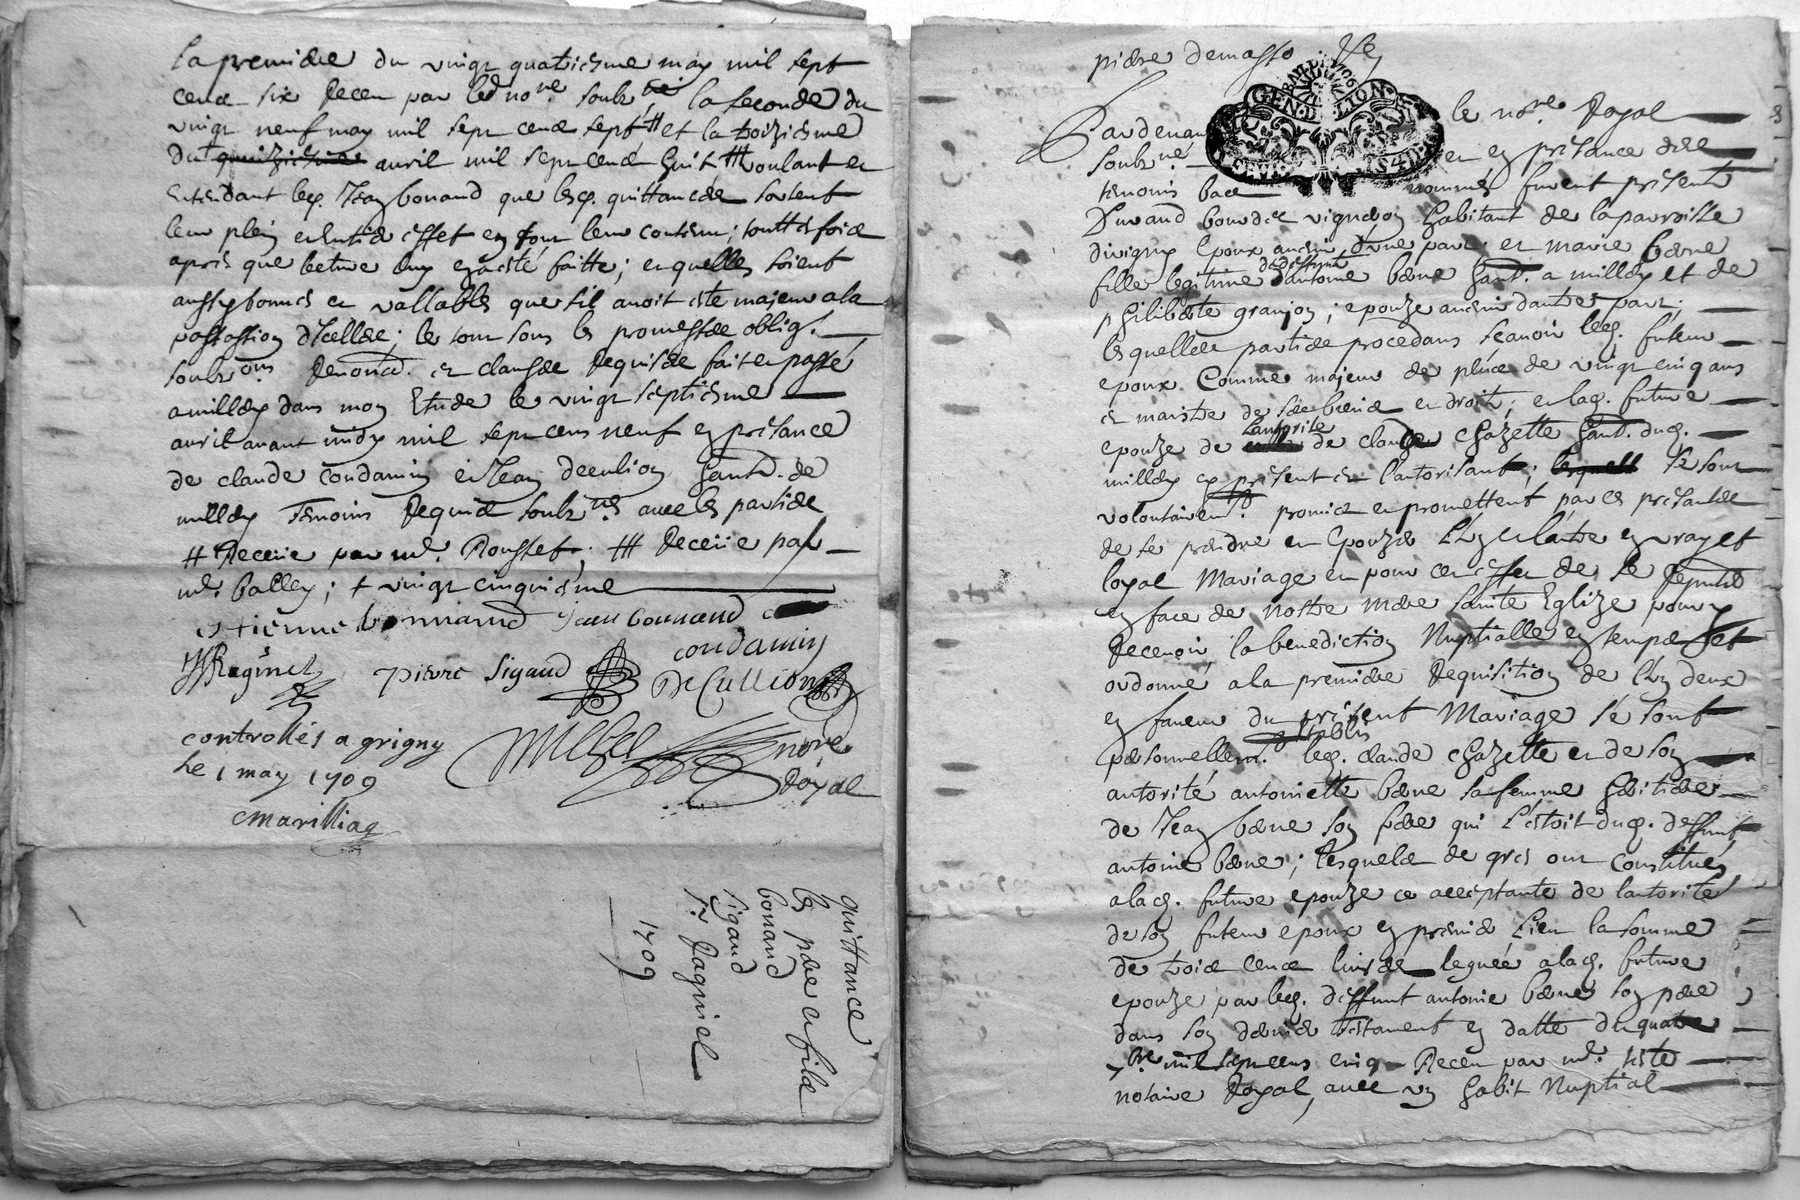 la premiere du vingt quatriesme may mil sept
cens six receu par led nore soubz né la seconde du
vingt neuf may mil sept cens sept # et la troiziesme
du + quinziesme avril mil sept cens huit ### voulant et
entendant led. Jean bonnand que lesd. quittances sortent
leur plein et entier effet en tour leur contenu; touttesfois
apres que lecture luy en a esté faitte; et quelles soient
aussy bonnes et vallables que sil avoit esté majeur a la
passation dicelles; le tout sous les promesses oblig.
soubz ons renonca. et clauses requises fait et passé
a millery dans mon Etude le vingt septiesme
avril avant midy mil sept cens neuf en presance
de claude condamin et Jean decullion habt. de
millery temoins requis soubz nés avec les parties
# Receüe par me. Rousset; ### receüe par
me. balley; + vingt cinquiesme
estienne bonnand Jean bonnand c
condamin
Raginel pierre Sigaud DeCullion
controllés a grigny nore
le 1 may 1709 Royal
Marilliac
quittance
les pere et filz
bonand
sigaud
sr. Raginel
1709
pierre demasso
GEN.D.LION
Pardevant le nore. Royal
soubz né et en presance des
temoins bas nommés furent presents
Durand bourdin vigneron habitant de la parroisse
divigny Epoux advenir dune part; et marie berne
fille legitime de deffunt antoine berne habt. a millery et de
philiberte granjon; epouze advenir dautre part;
lesquelles parties procedans scavoir led. futeur
epoux Comme majeur de plus de vingt cinq ans
et maistre de ses biens et droits; et lad. future
epouze de lautorité de claude chazette habt. dud.
millery cy present et l'autorisant; lesquell se sont
volontairemt. promis et promettent par ces presantes
de se prendre et Epouzer L'un et lautre en vray et
loyal Mariage et pour cet effet de se representer
en face de nostre mere sainte Eglize pour y
recevoir la benediction Nuptialle en temps et
ordonné a la premiere requisition de l'un deux
en faveur du present Mariage se sont
personnellemt. establis led. claude chazette et de son
autorité antoinette berne sa femme heritiere
de Jean berne son frere qui L'estoit dud. deffunt
antoine berne; lesquels de gres ont Constitués
a lad. future epouze ce acceptante de lautorité
de son futeur epoux en premier Lieu la somme
de trois cens livres leguée a lad. future
epouze par led. deffunt antoine berne son pere
dans son dernier testament en datte du quatre
7bre mil sept cens cinq Receu par me. teste
notaire Royal, avec un habit Nuptial